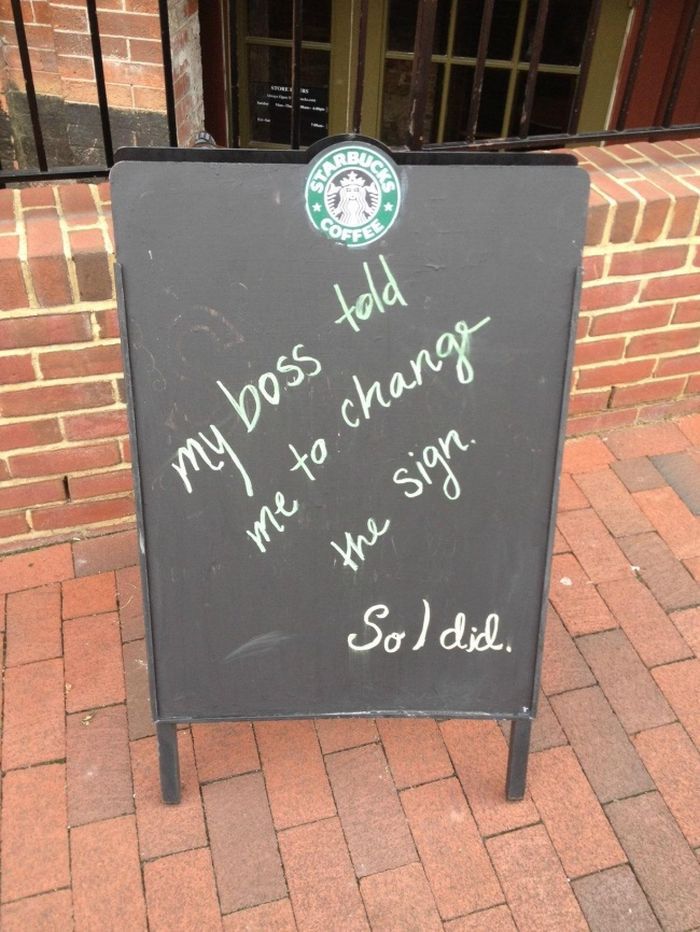 STORE
STARBUCKS
COFFEE
my boss told
me to change
the sign.
So I did.